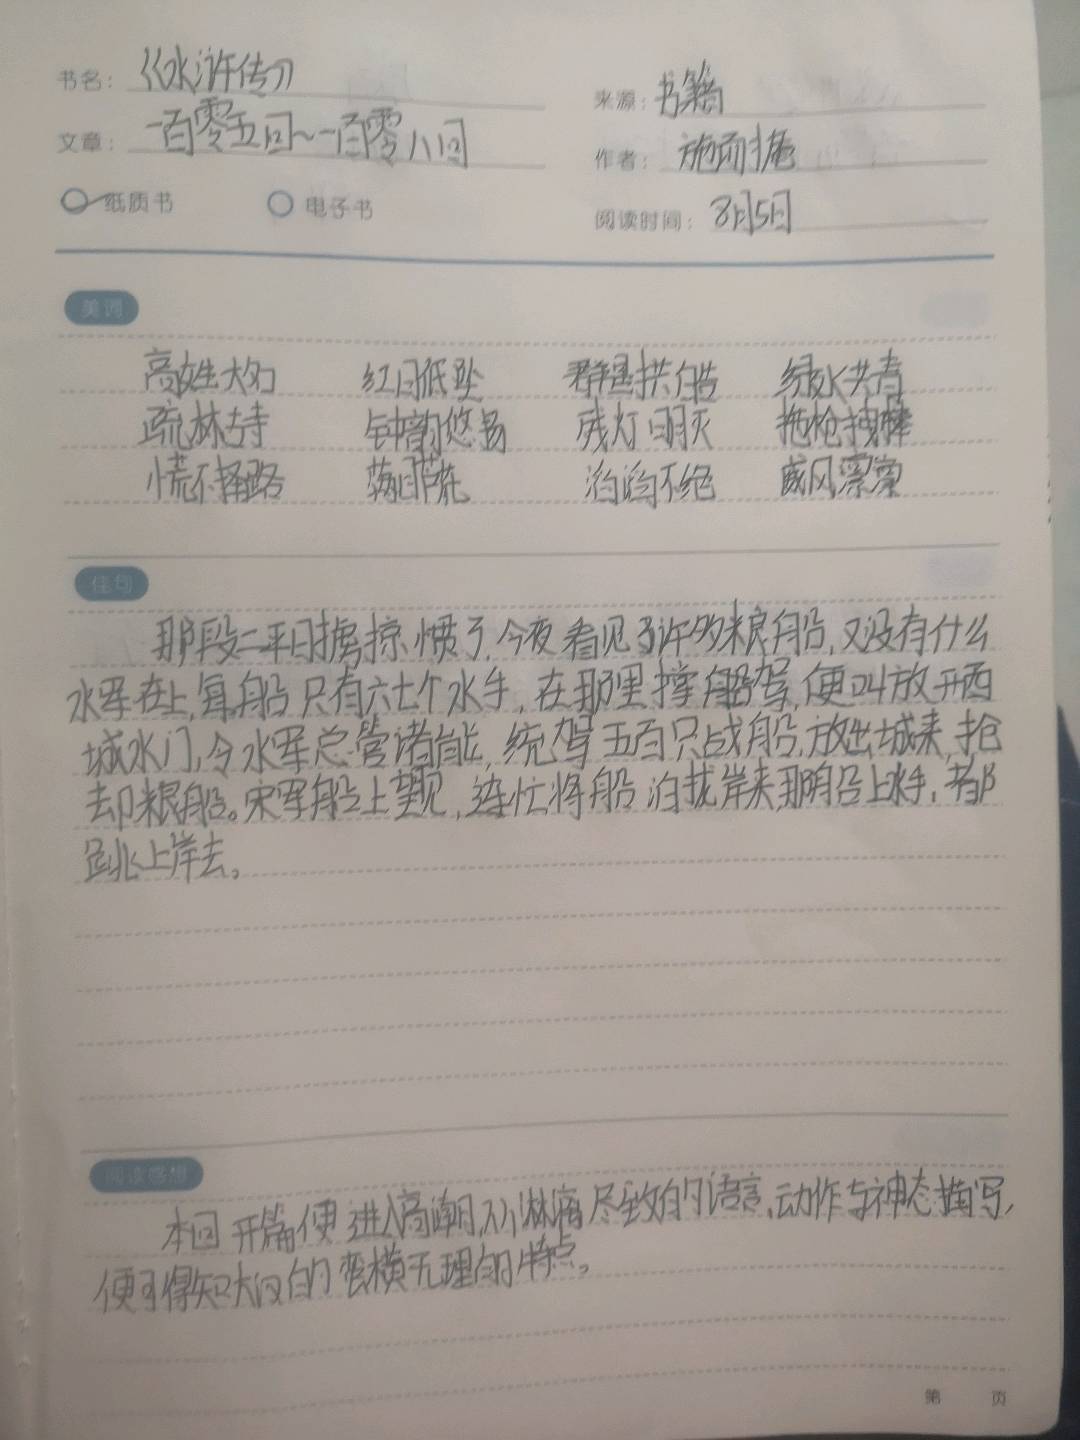 书名：《水浒传》
来源：书籍
文章：一百零五回~一百零八回
作者：施耐庵
纸质书 电子书
阅读时间：8月5日
美词
高姓大名 红日低坠 群星拱 绿水共青
疏林古寺 钟韵悠扬 残灯明灭 拖枪拽棒
慌不择路 芦花 滔滔不绝 威风凛凛
佳句
那段二平日掳掠惯了，今夜看见了许多粮船，又没有什么
水军在上，每船只有六七个水手，在那里撑船驾，便叫放开西
城水门，令水军总管诸能，统驾五百只战船，放出城来，抢
去却粮船。宋军船上望见，连忙将船泊拢岸来，那船上水手，都
跳上岸去。
阅读感想
本回开篇便进入高潮，从淋漓尽致的语言、动作与神态描写，
便可得知大汉的蛮横无理的特点。
第 页